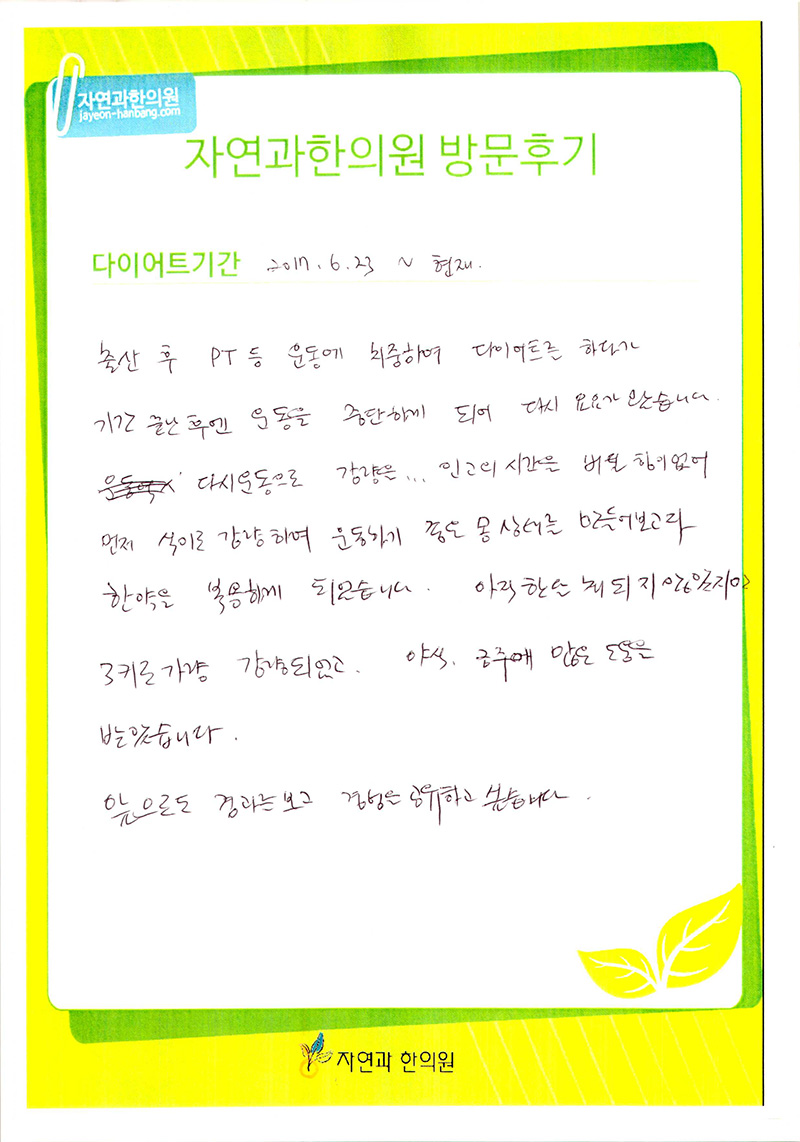 자연과한의원
jayeon-hanbang.com
자연과한의원 방문후기
다이어트기간 2017. 6. 23 ~ 현재.
출산 후 PT 등 운동에 치중하여 다이어트를 하다가
기간 끝난 후엔 운동을 중단하게 되어 다시 요요가 왔습니다.
다시 운동으로 감량은... 인고의 시간을 버틸 힘이 없어
먼저 식이로 감량하며 운동하기 좋은 몸 상태를 만들어보고자
한약을 복용하게 되었습니다. 아직 한 달 되지 않았지만
3키로 가량 감량되었고. 야식. 금주에 많은 도움을
받았습니다.
앞으로도 경과를 보고 경험을 공유하고 싶습니다.
자연과 한의원